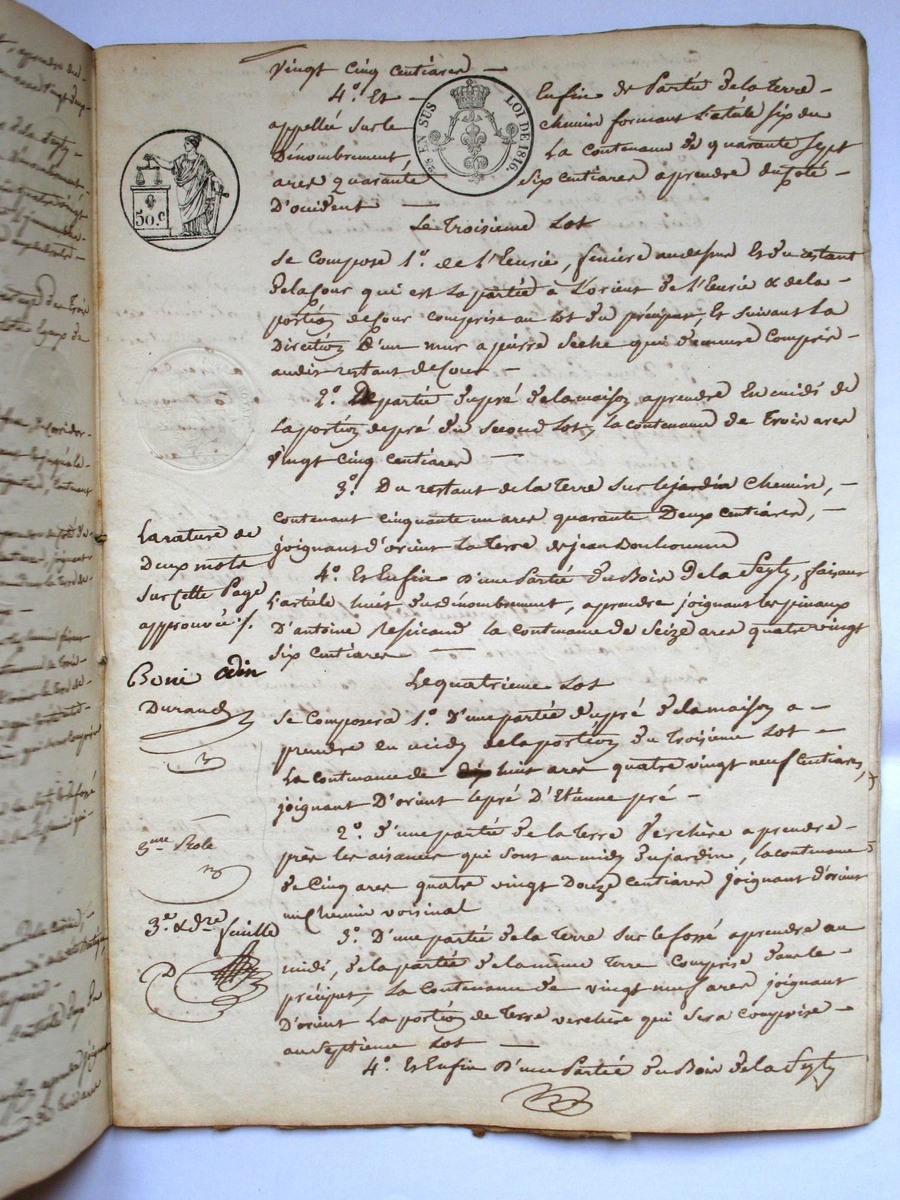 vingt cinq centiares —
4.º Et — Enfin de Partie de la Terre
appellée sur le chemin formant l'atéle six du
Dénombrement, la contenance de quarante Sept
ares quarante six centiares aprendre du Coté
D'occident —
50.c
2/S EN SUS LOI DE 1816.
Le Troisieme Lot
Se Compose 1.º de l'Eeurie, feniére au dessus Et du restant
de la Cour qui est la partie à L'orient de l'Eeurie & de la
portion de Cour comprise au Lot du préciput, Et suivant La
Direction D'un mur a pierre Seche qui demeure Compris
audit restant de Cour —
2.º De partie du pré de la maison aprendre En midi de
La portion de pré du Second Lot, la contenance de Trois ares
vingt cinq centiares —
3.º Du restant de la Terre Sur le jardin Chemin, —
contenant cinquante un ares quarante Deux centiares, —
joignant d'orient La Terre de jean Bonhomme
4.º Et Enfin D'une Partie du Bois De la Seyty, faisant
L'artéle huit du dénombrement, aprendre joignant les pinaux
D'antoine la contenance de Seize ares quatre vingt
six centiares —
La rature de
Deux mots
Sur Cette Page
approuvée ./.
Boni odin
Durand
Le quatrieme Lot
Se Composera 1.º D'une partie du pré de la maison a —
prendre en midy de la portion du Troisieme Lot —
La contenance de dix huit ares quatre vingt neuf Centiares,
joignant D'orient le pré D'Etienne pré —
2.º d'une partie de la Terre Verchère aprendre —
près les aisances qui Sont au midy du jardin, la contenance
de Cinq ares quatre vingt Douze centiares joignant d'orient
un Chemin voisinal
3.me Role
3.e & d.re feuille
3.º D'une partie de la Terre Sur le fossé aprendre au
midi, de la partie de la même Terre Comprise dans le —
préciput, La Contenance de vingt neuf ares joignant
D'orient La portion de Terre verchère qui Sera Comprise —
au Septieme Lot —
4.º Et Enfin D'une Partie du Bois de la Seyty